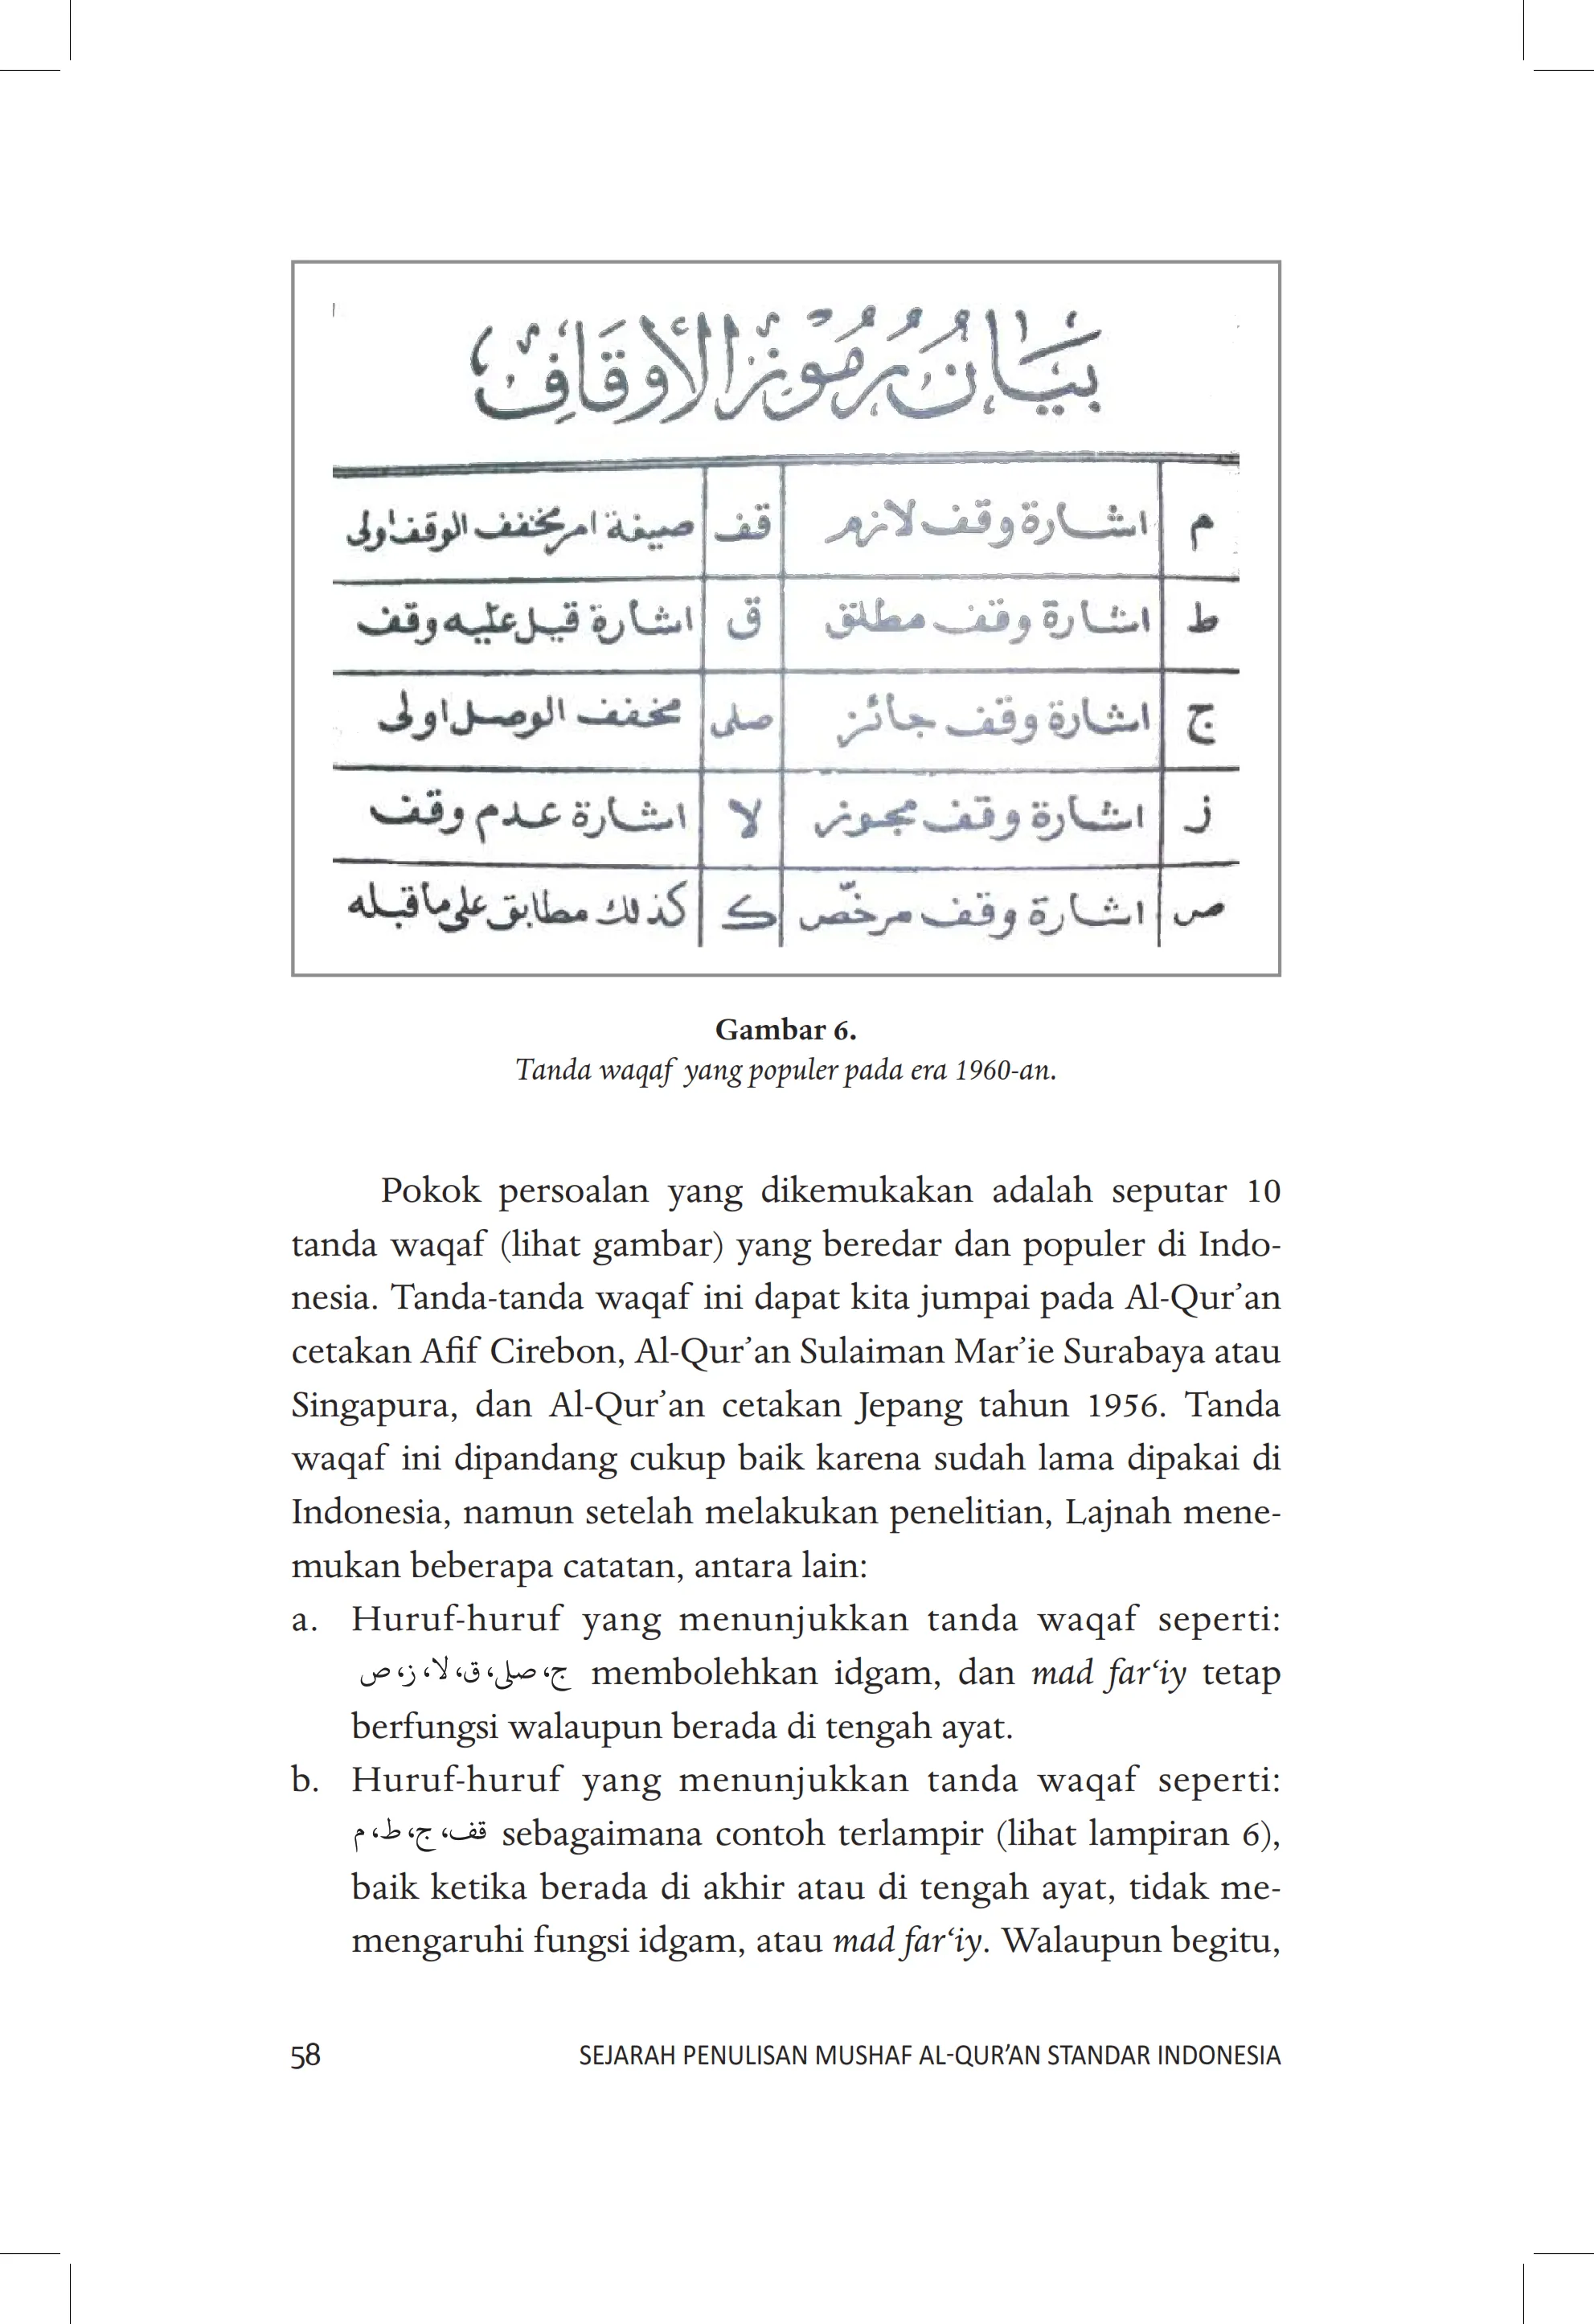 بيان رموز الأوقاف
م اشارة وقف لازم قف صيغة امر مخفف الوقف اولى
ط اشارة وقف مطلق ق اشارة قيل عليه وقف
ج اشارة وقف جائز صلى مخفف الوصل اولى
ز اشارة وقف مجوز لا اشارة عدم وقف
ص اشارة وقف مرخّص ك كذلك مطابق على ما قبله
Gambar 6.
Tanda waqaf yang populer pada era 1960-an.
Pokok persoalan yang dikemukakan adalah seputar 10
tanda waqaf (lihat gambar) yang beredar dan populer di Indo-
nesia. Tanda-tanda waqaf ini dapat kita jumpai pada Al-Qur’an
cetakan Afif Cirebon, Al-Qur’an Sulaiman Mar’ie Surabaya atau
Singapura, dan Al-Qur’an cetakan Jepang tahun 1956. Tanda
waqaf ini dipandang cukup baik karena sudah lama dipakai di
Indonesia, namun setelah melakukan penelitian, Lajnah mene-
mukan beberapa catatan, antara lain:
a. Huruf-huruf yang menunjukkan tanda waqaf seperti:
ج، صلى، ق، لا، ز، ص membolehkan idgam, dan mad far‘iy tetap
berfungsi walaupun berada di tengah ayat.
b. Huruf-huruf yang menunjukkan tanda waqaf seperti:
قف، ج، ط، م sebagaimana contoh terlampir (lihat lampiran 6),
baik ketika berada di akhir atau di tengah ayat, tidak me-
mengaruhi fungsi idgam, atau mad far‘iy. Walaupun begitu,
58 SEJARAH PENULISAN MUSHAF AL-QUR’AN STANDAR INDONESIA